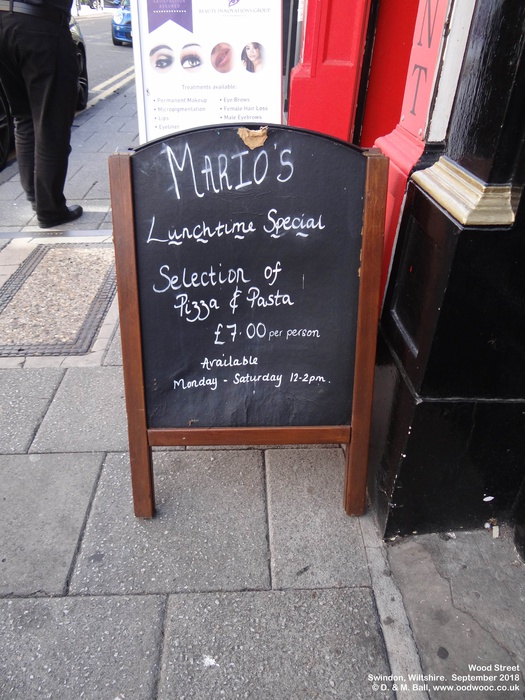 Treatments available
• Permanent Makeup
• Micropigmentation
• Lips
• Eyeliner
• Eye Brows
• Female Hair Loss
• Male Eyebrows
NT
MARIO'S
Lunchtime Special
Selection of
Pizza & Pasta
£7.00 per person
Available
Monday - Saturday 12-2pm.
Wood Street
Swindon, Wiltshire. September 2018
© D. & M. Ball, www.oodwooc.co.uk